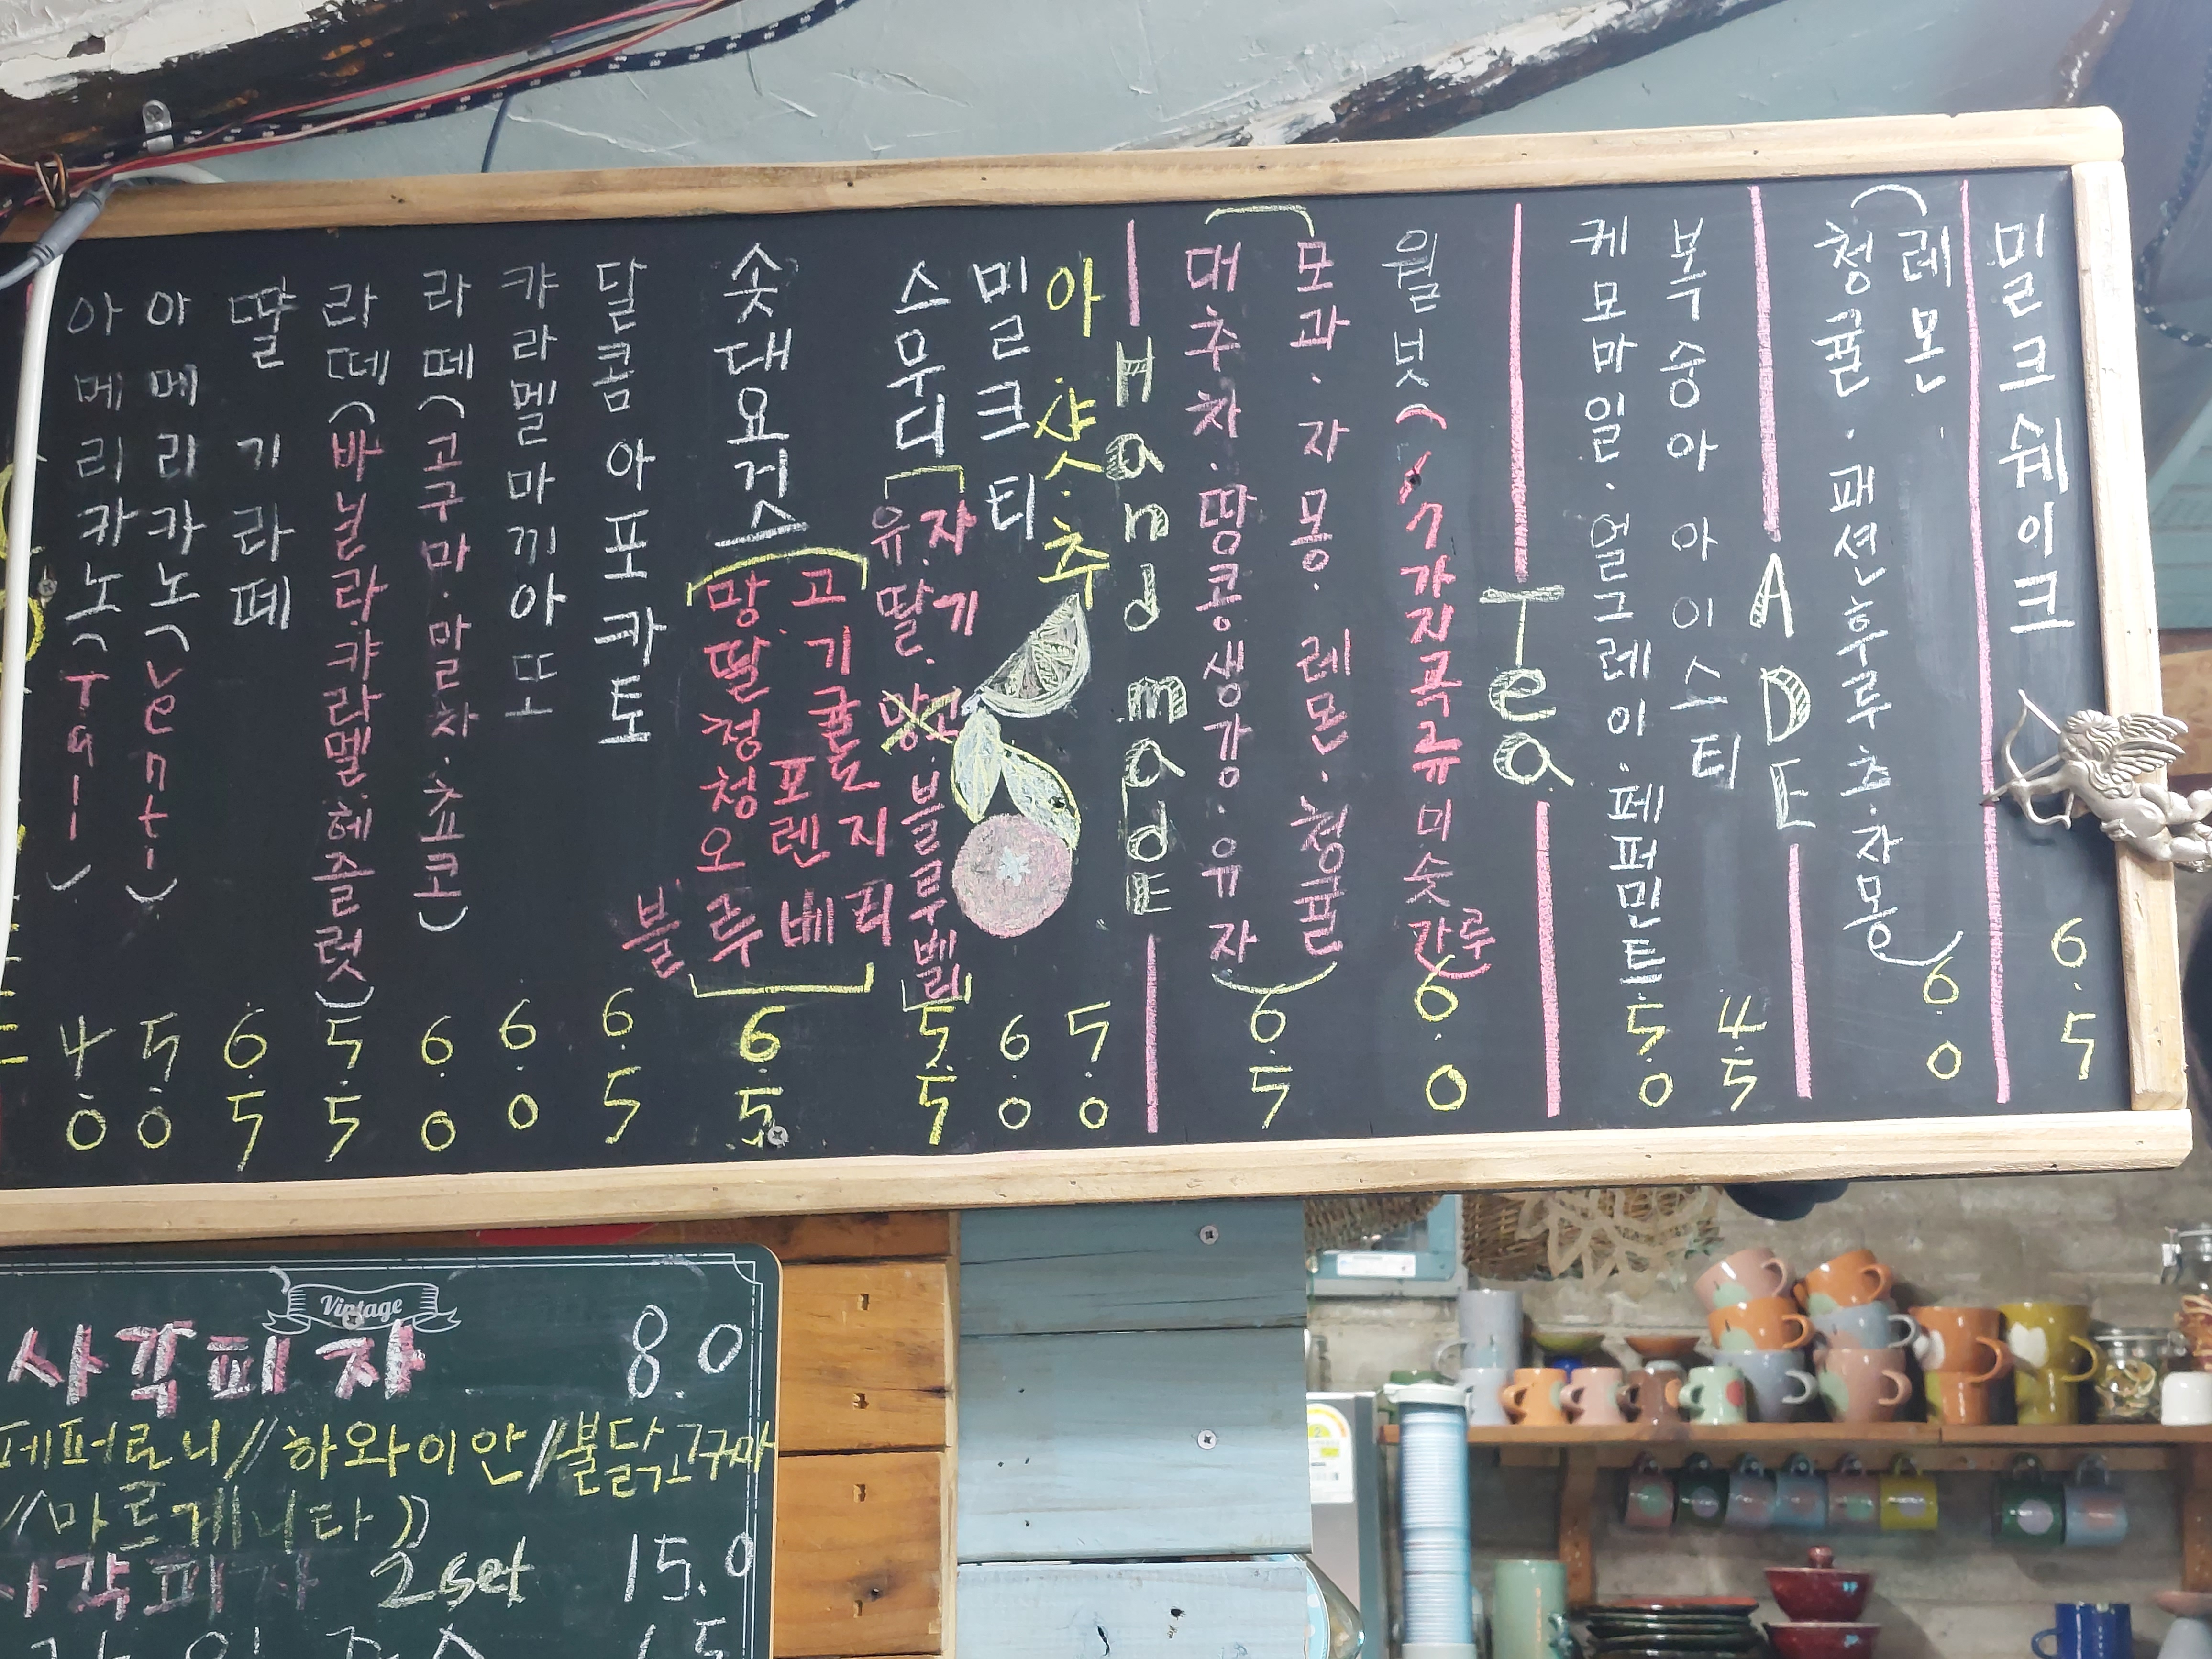 아메리카노(Tall) 4.0
아메리카노(Venti) 5.0
딸기라떼 6.5
라떼(바닐라.캬라멜.헤즐럿) 5.5
라떼(고구마.말차.쵸코) 6.0
캬라멜마끼아또 6.0
달콤아포카토 6.5
솟대요거스
망고
딸기
청귤
청포도
오렌지
블루베리
6.5
스무디
유자
딸기.
망고.
블루베리
5.5
밀크티 6.0
아샷추 5.0
Hand madE
대추차.땅콩생강.유자
모과.자몽.레몬.청귤
6.5
월넛(17가지곡류미숫가루) 6.0
Tea
케모마일.얼그레이.페퍼민트 5.0
복숭아 아이스티 4.5
ADE
(레몬.
청귤.패션후루츠.자몽) 6.0
밀크쉐이크 6.5
Vintage
사각피자 8.0
페퍼로니//하와이안//불닭고구마
//마르게니타))
사각피자 2set 15.0